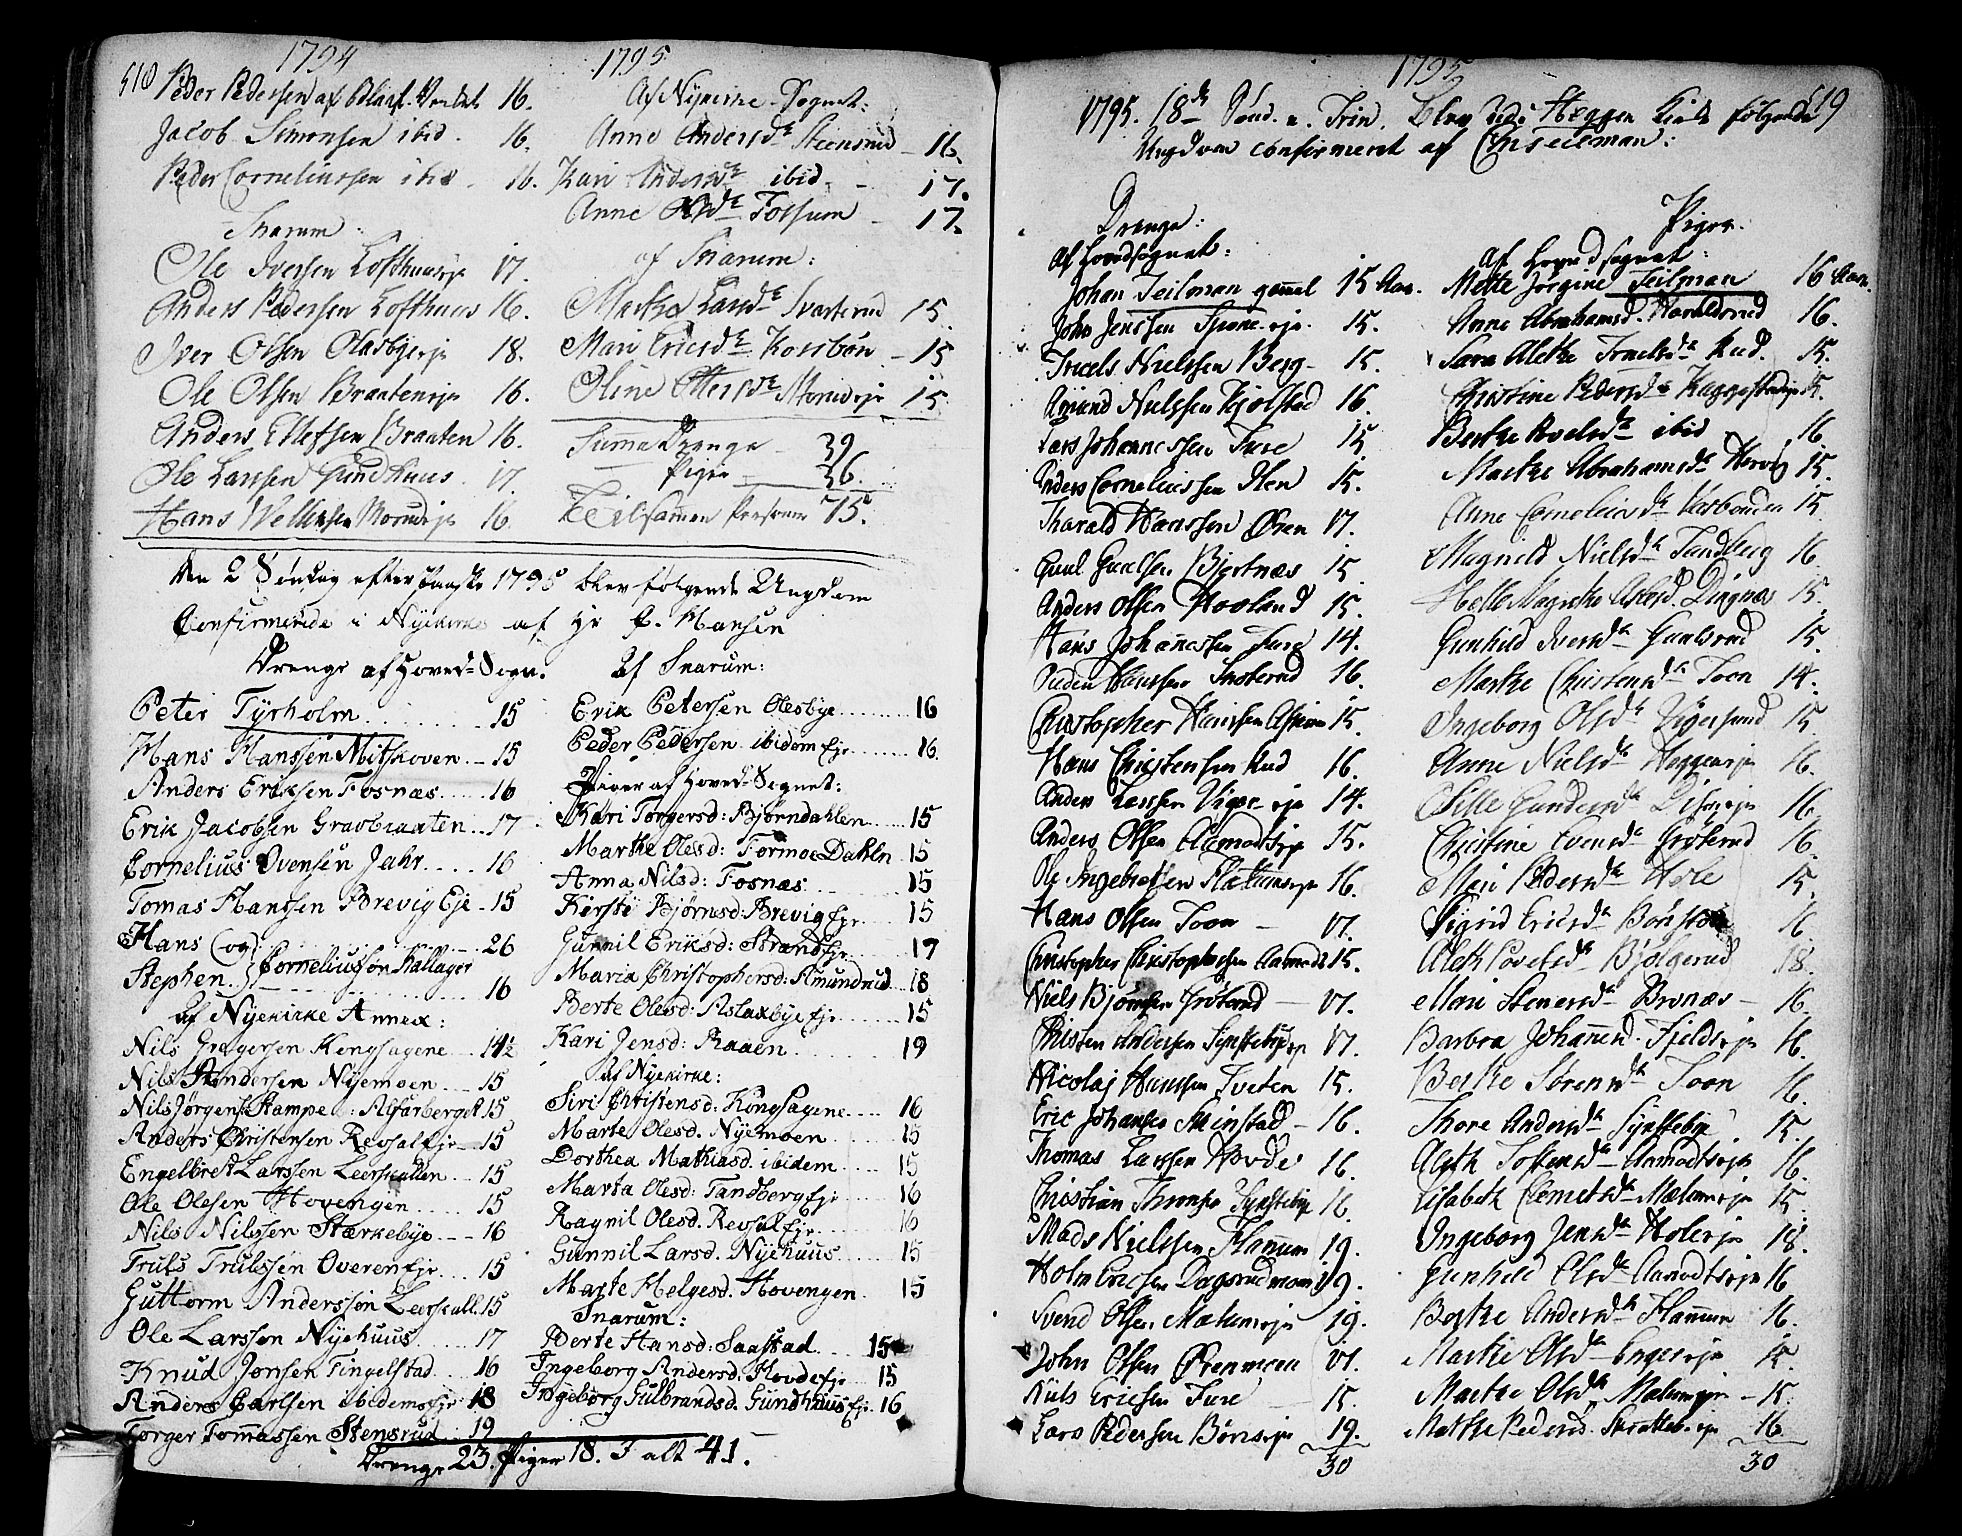 518
1794
Peder Pedersen af 16.
Jacob Simonsen ibid. 16.
Peder Corneliussen ibid. 16.
Snarum:
Ole Iversen Loffthuusejr 17.
Anders Pedersen Loffthuus 16.
Iver Olsen Olasbyejr 18.
Ole Olsen Braatenejr 16.
Anders Ellefsen Braaten 16.
Ole Larssen Gundhuus. 17.
Hans 16.
1795
Af Nykirke Sognet:
Anne Andersd. Steensrud 16.
Kari Andersd. ibid 17.
Anne Olsd. Fossum 17.
af Snarum:
Marthe Larsd. Svarterud 15.
Mari Ericsd. Korsbøn 15
Oline Ottersd. Morudejr 15
Summa Drenge 39.
Piger 36.
Tilsammen Personer 75.
Den 2 Søndag efter Paaske 1795 blev følgende Ungdom
Confirmerede i Nyekirke af Hr P. Hansen
Drenge af Hoved-Sogn.
Peter Tyrholm 15
Hans Hanssen Mitskoven 15
Anders Eriksen Fosnæs 16
Erik Jacobsen Gravbraaten 17
Cornelius Svensen Jahr 16
Tomas Hanssen Brevig Eje 15
Hans (og) 26
Stephen Corneliussøn Kallager 16
af Nyekirke Annex:
Nils Gregersen Kongsagene 14½
Nils Andersen Nyemoen 15
Nils Jørgens. Stampe: Alfarberget 15
Anders Christensen Revsalejr 15
Engelbret Larssen Leerskallen 15
Ole Olesen Hovengen 15
Nils Nilssen Stærkebye 16
Truls Trulssen Overenejr 15
Guttorm Anderssøn Leerskall. 15
Ole Larssen Nyehuus 17
Knud Jonsen Tingelstad 16
Anders Carlsen ibidemejr 18
Torger Tomassen Stensrud 19
Af Snarum:
Erik Petersen Olesbye 16
Peder Pedersen ibidem Ejr 16.
Piger af Hoved-Sognet:
Kari Torgersd: Bjørndahlen 15
Marthe Olesd: Formoe Dahln 15
Anna Nilsd: Fosnæs 15
Kirste Bjørnsd: Brevig Ejr 15
Gunnil Eriksd: Strand Ejr 17
Maria Christophersd: Amundrud 18
Berte Olesd: Aslaxbye Ejr 15
Kari Jensd: Raaen 19
af Nyekirke:
Siri Christensd: Kongsagene 16
Marte Olesd. Nyemoen 15
Dorthea Mathiasd. ibidem 15
Marta Olesd: Tandberg Ejr 16
Ragnil Olesd. Revsal Ejr 16
Gunnil Larsd. Nyehuus 15
Marte Helgesd. Hovengen 15
Snarum:
Berte Hansd: Saastad 15
Ingeborg Andersd: Hovde Ejr 15
Ingeborg Gulbrandsd. Gundhuus Ejr. 16
Drenge 23. Piger 18. I alt 41.
1795
519
1795. 18de Sønd. e. Trin. Blev udi Heggen Kirke følgende
Ungdom confirmeret af
Drenge:
Af Hovedsognet:
Johan Teilman gammel 15 Aar.
John Jenssen ejr. 15.
Truels Nielssen Berg 15.
Amund Nielssen Kjølstad 16.
Lars Johannessen Fure 15
Anders Corneliussen 15.
Harald Hanssen Øren 17.
Gaul Gaulsen Bjertnæs 15
Anders Olsen Hovland 15.
Hans Johannessen Fure 14.
Hanssen 16.
Christopher Hanssen 15.
Hans Christensen Rud 16.
Anders Larssen ejr 14.
Anders Olsen Aamodtejr 15.
Ole Ingebretsen 16.
Hans Olsen Toon 17.
Christopher Christophersen Aamodt 15.
Niels Bjørnsen Grøterud 17.
Christen Andersen 17.
Nicolaj Hanssen Tveten 15.
Eric Johannes 16.
Thomas Larssen Hovde 16.
Christian 16.
Mads Nielssen Flannum 19.
Holm Ericsen 19.
Svend Olsen Mælumejr 19.
John Olsen Ørenmoen 17.
Niels Ericsen Fure 15.
Lars Pedersen Bønejr 19.
30
Piger.
Af Hovedsognet:
Mette Jørgine Teilman 16 Aar.
Anne Abrahamsd. Haraldsrud 16.
Sara Alethe Rud. 15.
Christine Pedersd. 15.
Berthe ibid 16
Marthe Abrahamsd. 15.
Anne Corneliusd. 15
Magnild Nielsd. Tandberg 16
Helle Magrethe Olsd. 15.
Gunhild Iversd. Gaulsrud 15.
Marthe Christensd. Toon 14.
Ingeborg Olsd. 15
Anne Nielsd. Heggenejr 16.
Sille Gundersd. 16
Christine Evensd. Grøterud 16.
Mari Pedersd. Hole 15.
Sigrid Ericsd. 16
Aleth 18.
Mari Stenersd. Brenæs 16.
Barbra Johannsd. Fjeldejr 16.
Berthe Sørensd. Toon 16.
Thore Andersd. 15.
Aleth Tostensd. Aamodtejr 16.
Elisabeth Clemetsd. Mælumejr 15.
Ingeborg Jensd. Holeejr 18.
Gunhild Olsd. Aamodtejr 16
Berthe Andersd. Flannum 16.
Marthe Olsd. Engerejr 15.
Marthe Olsd. Mælumejr 15.
Marthe Pedersd. 16
30